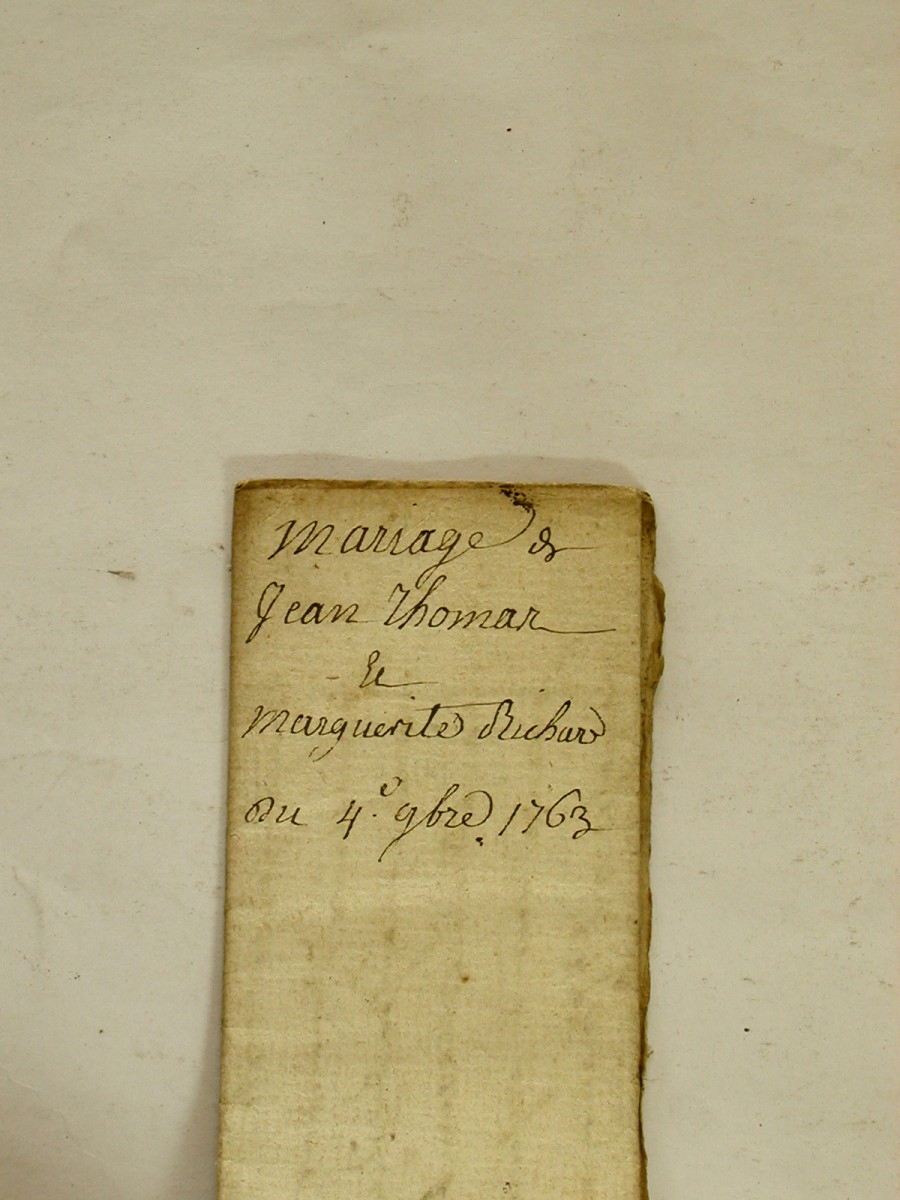 Mariage de
Jean Thomas
Et
Marguerite Richard
Du 4.e 9bre. 1763